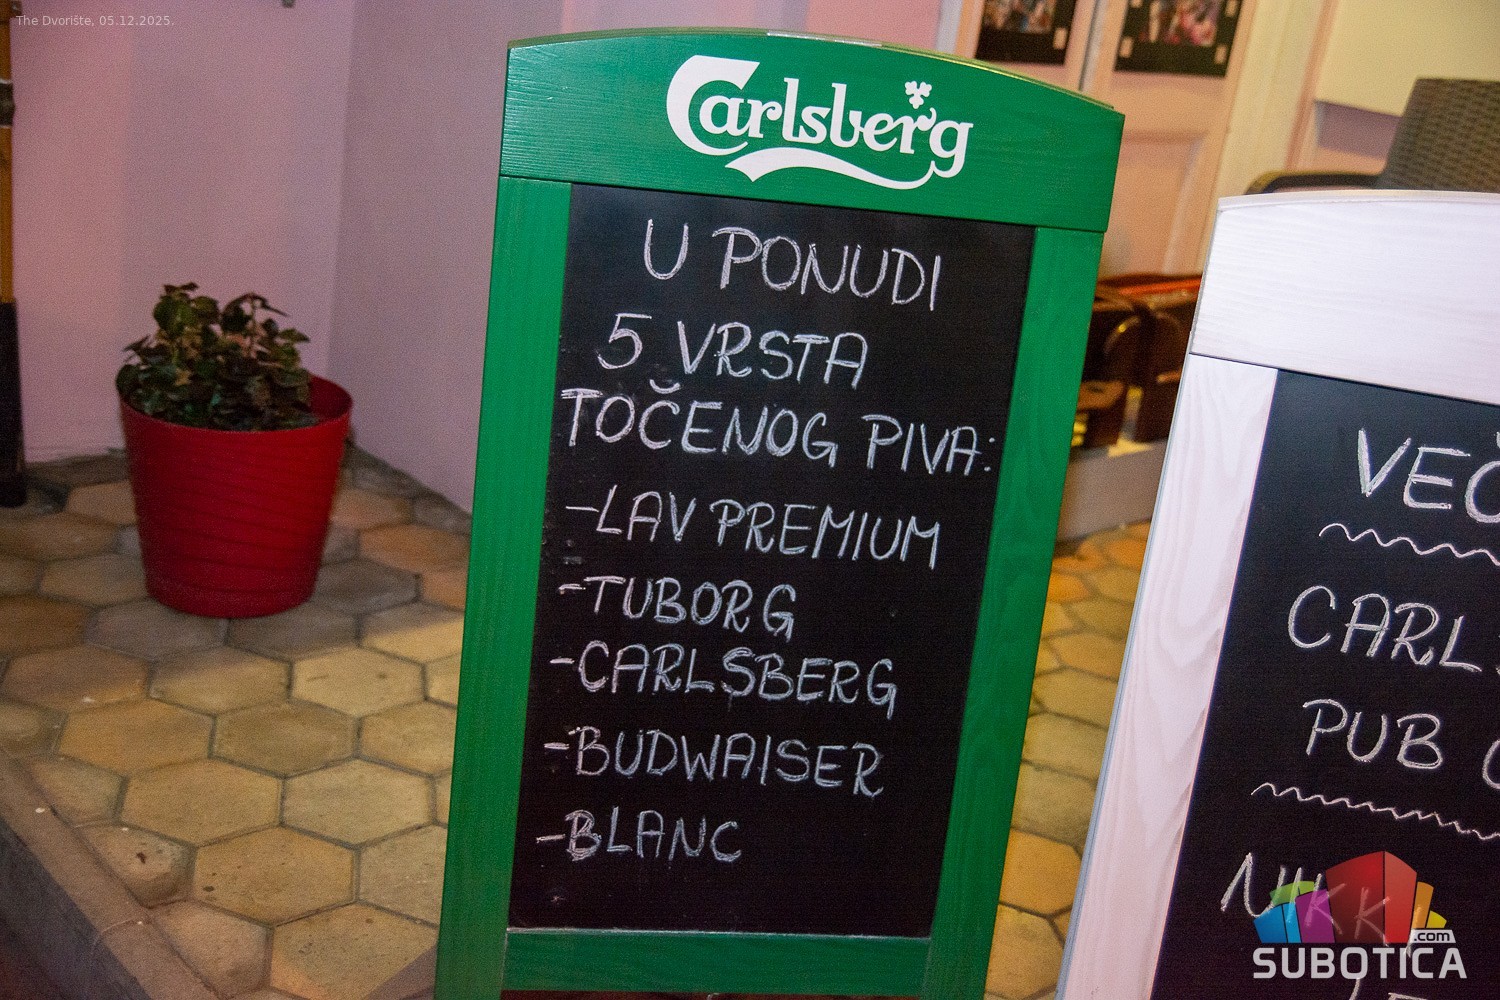 The Dvorište, 05.12.2025.
Carlsberg
U PONUDI
5 VRSTA
TOČENOG PIVA:
-LAV PREMIUM
-TUBORG
-CARLSBERG
-BUDWAISER
-BLANC
CARLS
PUB
NIKKI
SUBOTICA.com